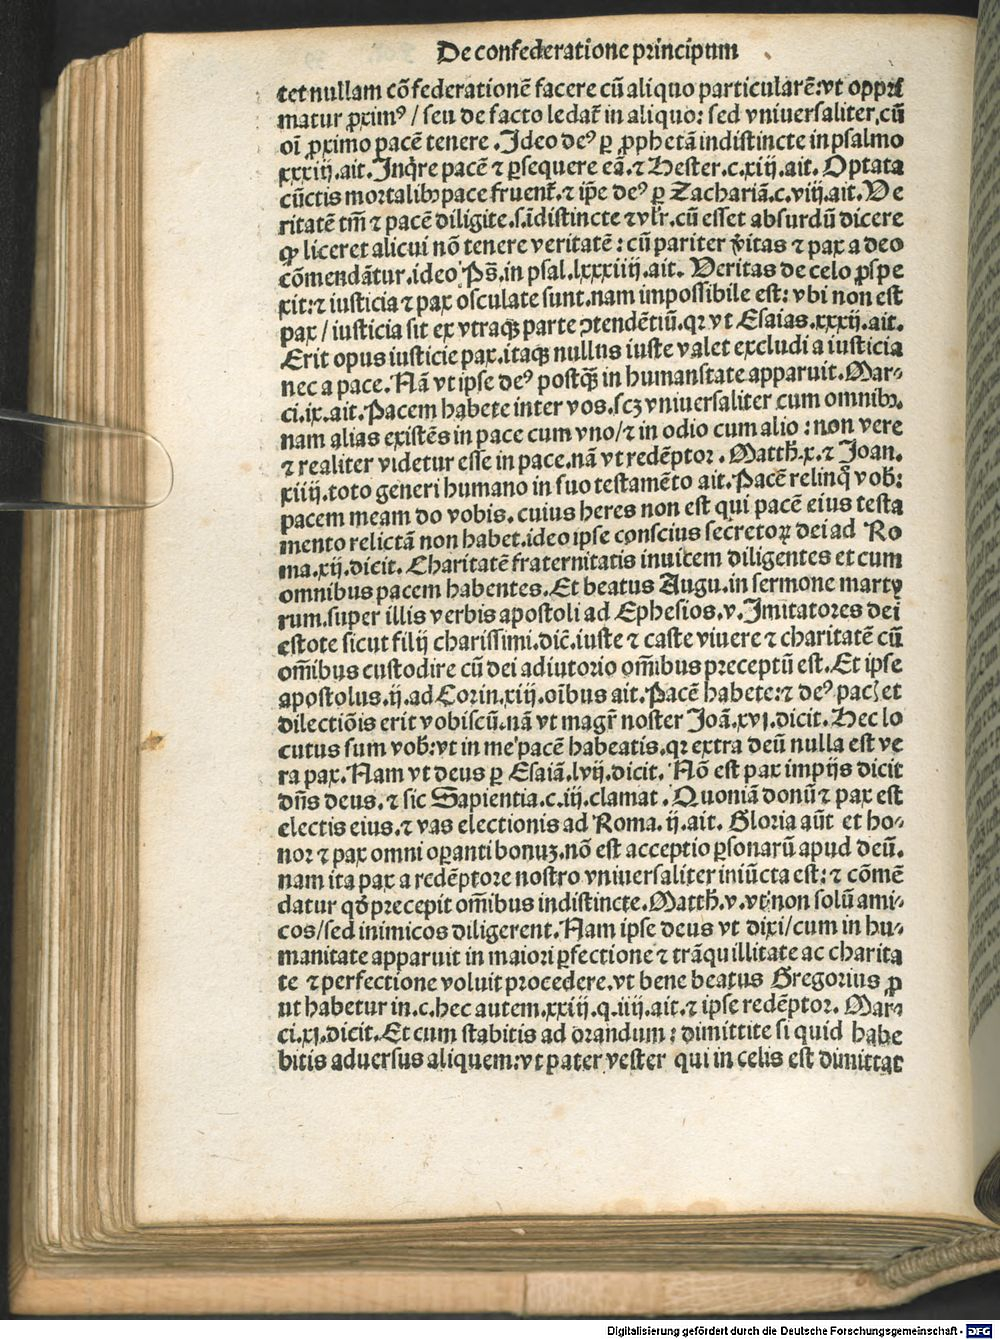 De confederatione principum
tet nullam cõfederationẽ facere cũ aliquo particularẽ: vt oppri
matur ꝓximꝰ / seu de facto ledat̃ in aliquo: sed vniuersaliter, cũ
oĩ ꝓximo pacẽ tenere. Ideo deꝰ ꝑ ꝓphetã indistincte in psalmo
xxxiij. ait. Inq̃re pacẽ ⁊ ꝑsequere eã. ⁊ Hester. c. xiij. ait. Optata
cũctis mortalibꝫ pace fruent̃. ⁊ ip̃e deꝰ ꝑ Zachariã. c. viij. ait. Ve
ritatẽ tm̃ ⁊ pacẽ diligite. s. ĩdistincte ⁊ vlr̃. cũ esset absurdũ dicere
ꝙ liceret alicui nõ tenere veritatẽ: cũ pariter v̾itas ⁊ pax adeo
cõmendãtur. ideo Ps̃. in psal. lxxxiiij. ait. Veritas de celo ꝓspe
xit: ⁊ iusticia ⁊ pax osculate sunt. nam impossibile est: vbi non est
pax / iusticia sit ex vtraqꝫ parte ꝯtendẽtiũ. qꝛ vt Esaias. xxxij. ait.
Erit opus iusticie pax. itaqꝫ nullus iuste valet excludi a iusticia
nec a pace. Nã vt ipse deꝰ postq̃ꝫ in humanitate apparuit. Mar⸗
ci. ix. ait. Pacem habete inter vos. scꝫ vniuersaliter cum omnibꝫ.
nam alias existẽs in pace cum vno / ⁊ in odio cum alio: non vere
⁊ realiter videtur esse in pace. nã vt redẽptor. Matth̃. x. ⁊ Joan.
xiiij. toto generi humano in suo testamẽto ait. Pacẽ relinq̃ vob̃:
pacem meam do vobis. cuius heres non est qui pacẽ eius testa
mento relictã non habet. ideo ipse conscius secretoꝝ dei ad Ro
ma. xij. dicit. Charitatẽ fraternitatis inuicem diligentes et cum
omnibus pacem habentes. Et beatus Augu. in sermone marty
rum. super illis verbis apostoli ad Ephesios. v. Imitatores dei
estote sicut filij charissimi. dic̃. iuste ⁊ caste viuere ⁊ charitatẽ cũ
om̃ibus custodire cũ dei adiutorio om̃ibus preceptũ est. Et ipse
apostolus. ij. ad Corin. xiij. oĩbus ait. Pacẽ habete: ⁊ deꝰ pacꝭ et
dilectiõis erit vobiscũ. nã vt magr̃ noster Joã. xvj. dicit. Hec lo
cutus sum vob̃: vt in me pacẽ habeatis. qꝛ extra deũ nulla est ve
ra pax. Nam vt deus ꝑ Esaiã. lvij. dicit. Nõ est pax impijs dicit
dñs deus. ⁊ sic Sapientia. c. iij. clamat. Quoniã donũ ⁊ pax est
electis eius. ⁊ vas electionis ad Roma. ij. ait. Gloria aũt et ho⸗
nor ⁊ pax omni oꝑanti bonuꝫ. nõ est acceptio ꝑsonarũ apud deũ.
nam ita pax a redẽptore nostro vniuersaliter iniũcta est: ⁊ cõmẽ
datur qđ precepit om̃ibus indistincte. Matth̃. v. vt non solũ ami⸗
cos / sed inimicos diligerent. Nam ipse deus vt dixi / cum in hu⸗
manitate apparuit in maiori ꝑfectione ⁊ trãquillitate ac charita
te ⁊ perfectione voluit procedere. vt bene beatus Gregorius ꝓ
ut habetur in. c. hec autem. xxiij. q. iiij. ait. ⁊ ipse redẽptor. Mar⸗
ci. xj. dicit. Et cum stabitis ad orandum: dimittite si quid habe
bitis aduersus aliquem: vt pater vester qui in celis est dimittat
Digitalisierung gefördert durch die Deutsche Forschungsgemeinschaft - DFG